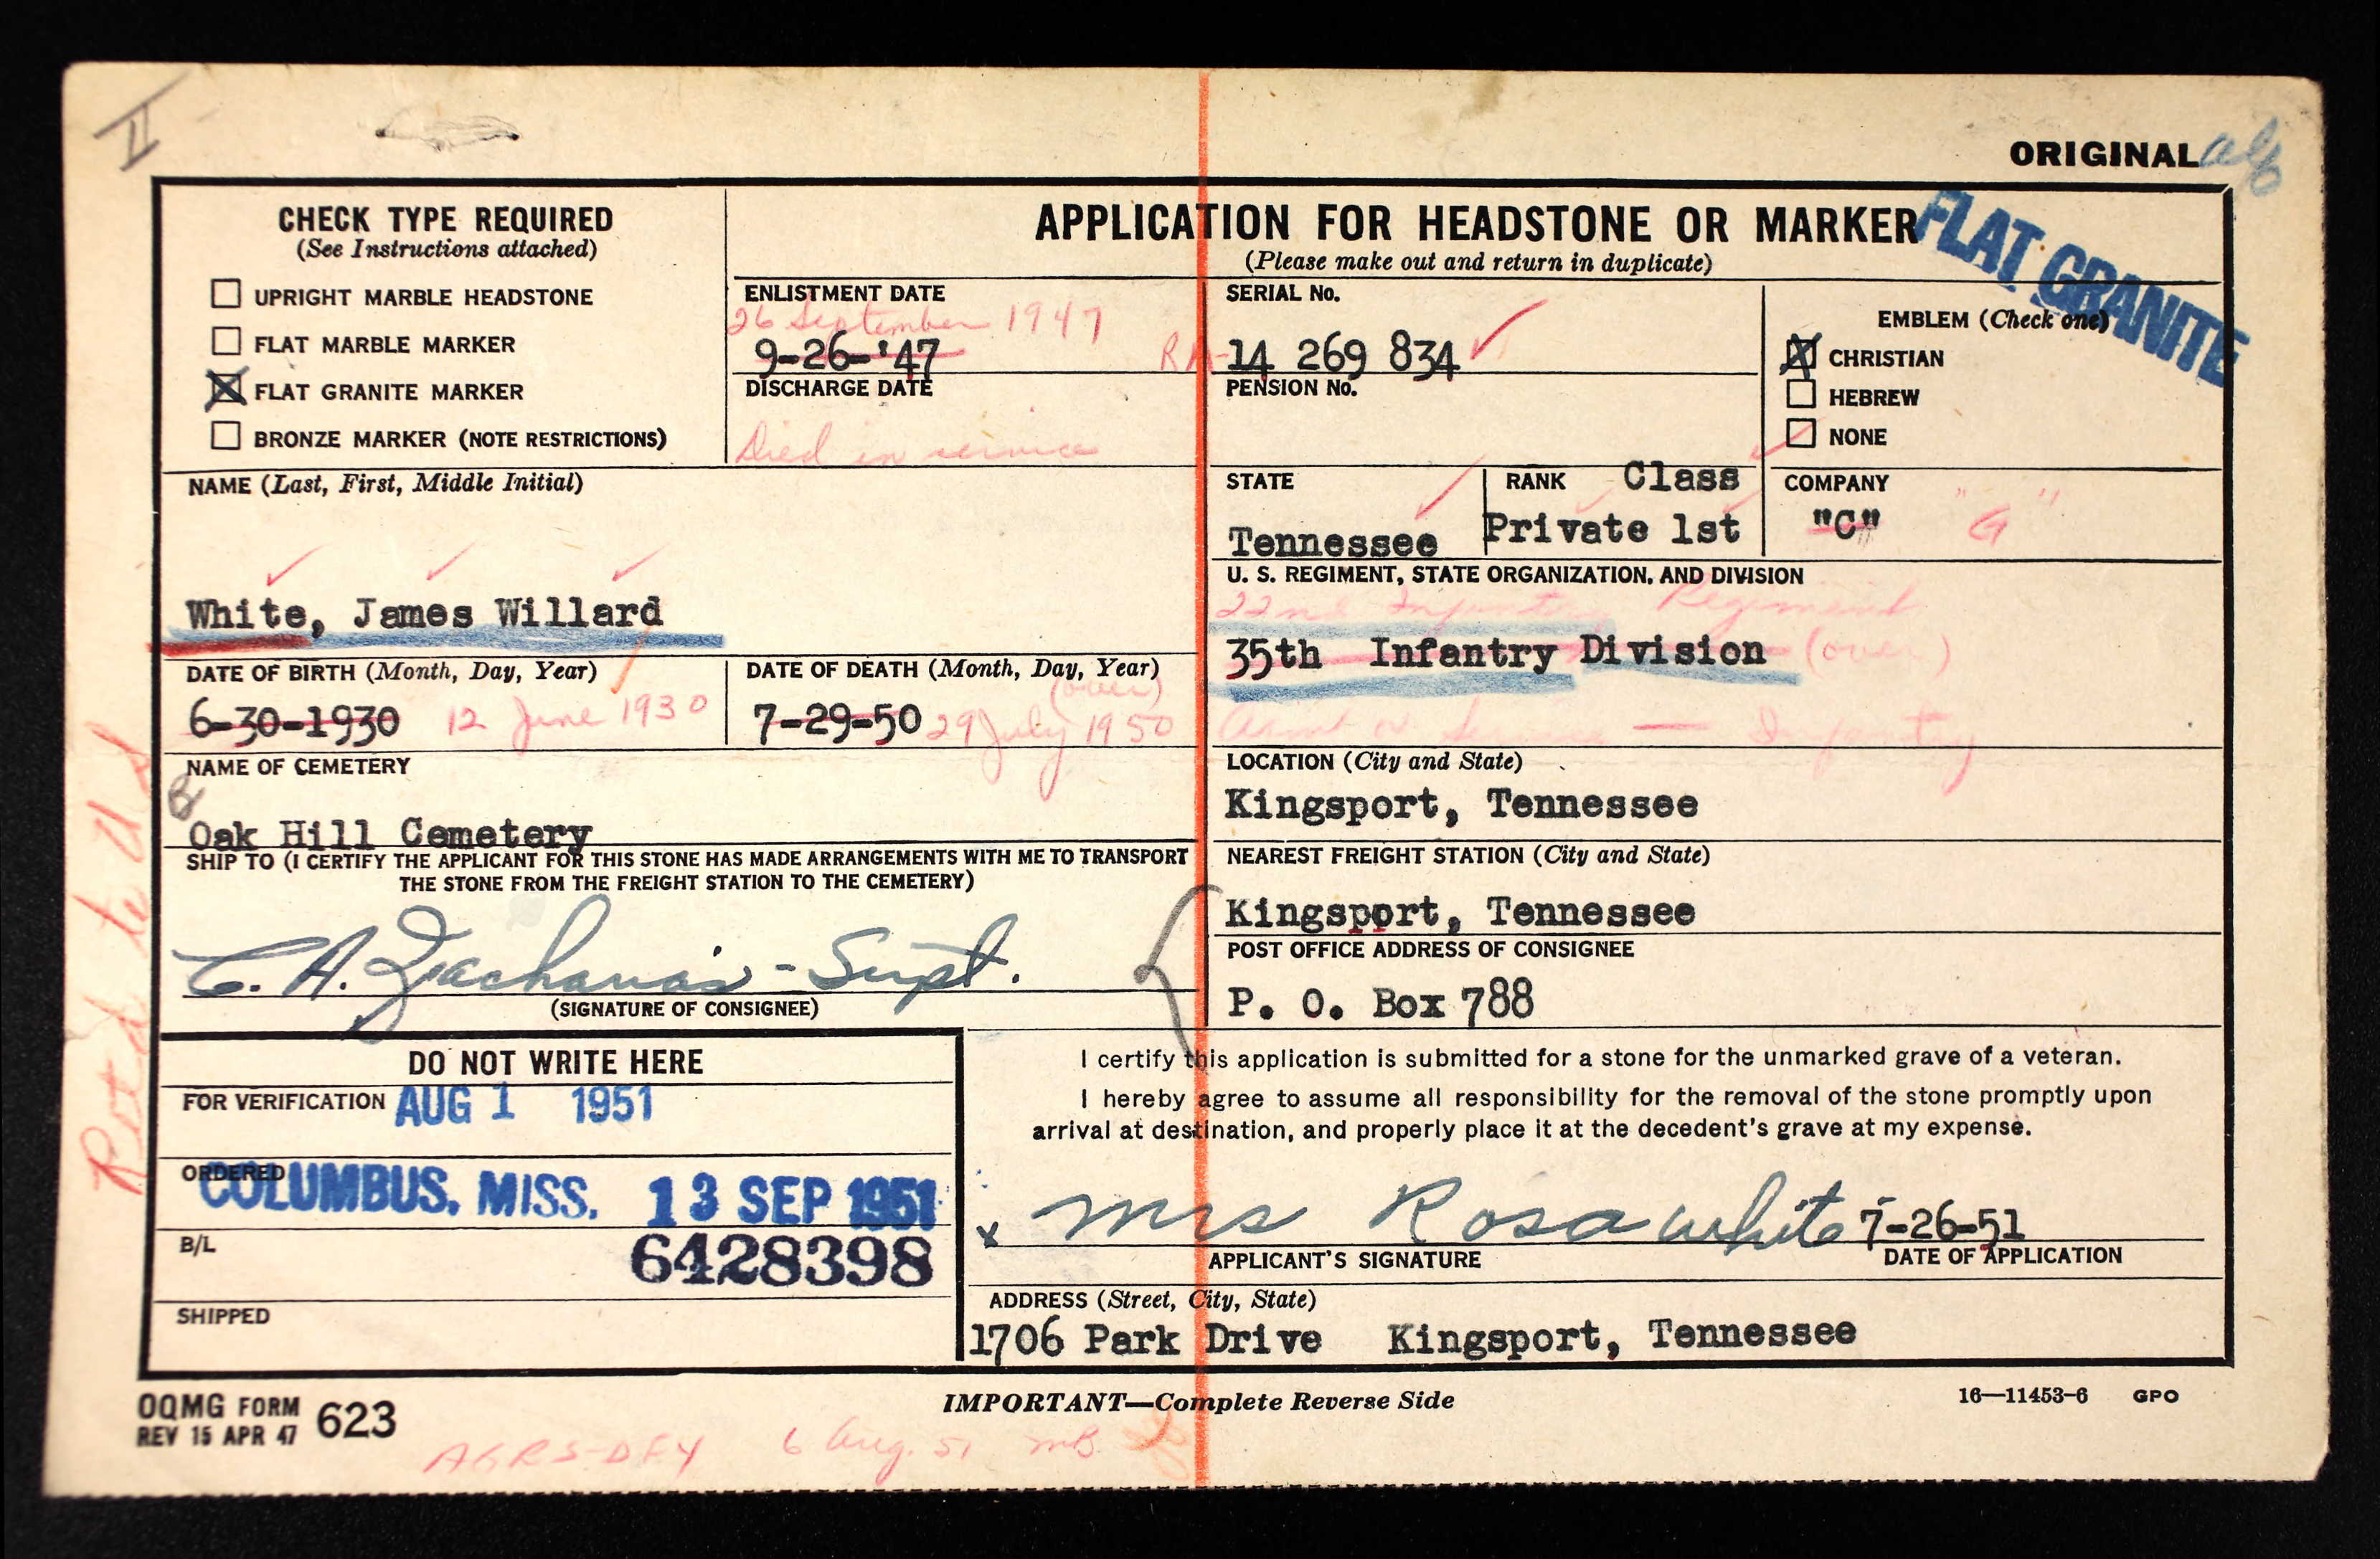 II
ORIGINAL
CHECK TYPE REQUIRED
(See Instructions attached)
UPRIGHT MARBLE HEADSTONE
FLAT MARBLE MARKER
FLAT GRANITE MARKER
BRONZE MARKER (NOTE RESTRICTIONS)
APPLICATION FOR HEADSTONE OR MARKER
(Please make out and return in duplicate)
FLAT GRANITE
ENLISTMENT DATE
26 September 1947
9-26-'47
DISCHARGE DATE
Died in service
SERIAL No.
RA 14 269 834
PENSION No.
EMBLEM (Check one)
CHRISTIAN
HEBREW
NONE
NAME (Last, First, Middle Initial)
White, James Willard
STATE
Tennessee
RANK Class
Private 1st
COMPANY
"C" "G"
U. S. REGIMENT, STATE ORGANIZATION, AND DIVISION
22nd Infantry Regiment
35th Infantry Division (over)
Arm or Service — Infantry
DATE OF BIRTH (Month, Day, Year)
6-30-1930 12 June 1930
DATE OF DEATH (Month, Day, Year)
(over)
7-29-50 29 July 1950
NAME OF CEMETERY
Oak Hill Cemetery
LOCATION (City and State)
Kingsport, Tennessee
SHIP TO (I CERTIFY THE APPLICANT FOR THIS STONE HAS MADE ARRANGEMENTS WITH ME TO TRANSPORT
THE STONE FROM THE FREIGHT STATION TO THE CEMETERY)
C. A. Zacharias - Supt.
(SIGNATURE OF CONSIGNEE)
NEAREST FREIGHT STATION (City and State)
Kingsport, Tennessee
POST OFFICE ADDRESS OF CONSIGNEE
P. O. Box 788
DO NOT WRITE HERE
FOR VERIFICATION AUG 1 1951
ORDERED
COLUMBUS, MISS. 13 SEP 1951
B/L
6428398
SHIPPED
I certify this application is submitted for a stone for the unmarked grave of a veteran.
I hereby agree to assume all responsibility for the removal of the stone promptly upon
arrival at destination, and properly place it at the decedent's grave at my expense.
x Mrs Rosa White 7-26-51
APPLICANT'S SIGNATURE
DATE OF APPLICATION
ADDRESS (Street, City, State)
1706 Park Drive Kingsport, Tennessee
Retd to US
OQMG FORM 623
REV 15 APR 47
IMPORTANT—Complete Reverse Side
16—11453-6 GPO
6 Aug. 51 MB